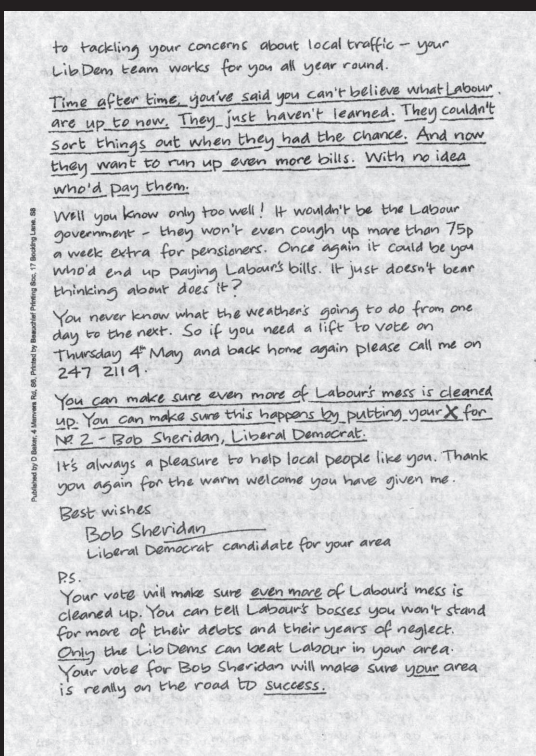 to tackling your concerns about local traffic – your
Lib Dem team works for you all year round.
Time after time, you've said you can't believe what Labour
are up to now. They just haven't learned. They couldn't
sort things out when they had the chance. And now
they want to run up even more bills. With no idea
who'd pay them.
Well you know only too well! It wouldn't be the Labour
government – they won't even cough up more than 75p
a week extra for pensioners. Once again it could be you
who'd end up paying Labour's bills. It just doesn't bear
thinking about does it?
You never know what the weather's going to do from one
day to the next. So if you need a lift to vote on
Thursday 4th May and back home again please call me on
247 2119.
You can make sure even more of Labour's mess is cleaned
up. You can make sure this happens by putting your X for
No. 2 – Bob Sheridan, Liberal Democrat.
It's always a pleasure to help local people like you. Thank
you again for the warm welcome you have given me.
Best wishes
Bob Sheridan
Liberal Democrat candidate for your area
P.S.
Your vote will make sure even more of Labour's mess is
cleaned up. You can tell Labour's bosses you won't stand
for more of their debts and their years of neglect.
Only the Lib Dems can beat Labour in your area.
Your vote for Bob Sheridan will make sure your area
is really on the road to success.
Published by D Baker, 4 Manvers Rd, S6, Printed by Beauchief Printing Soc, 17 Bocking Lane, S8